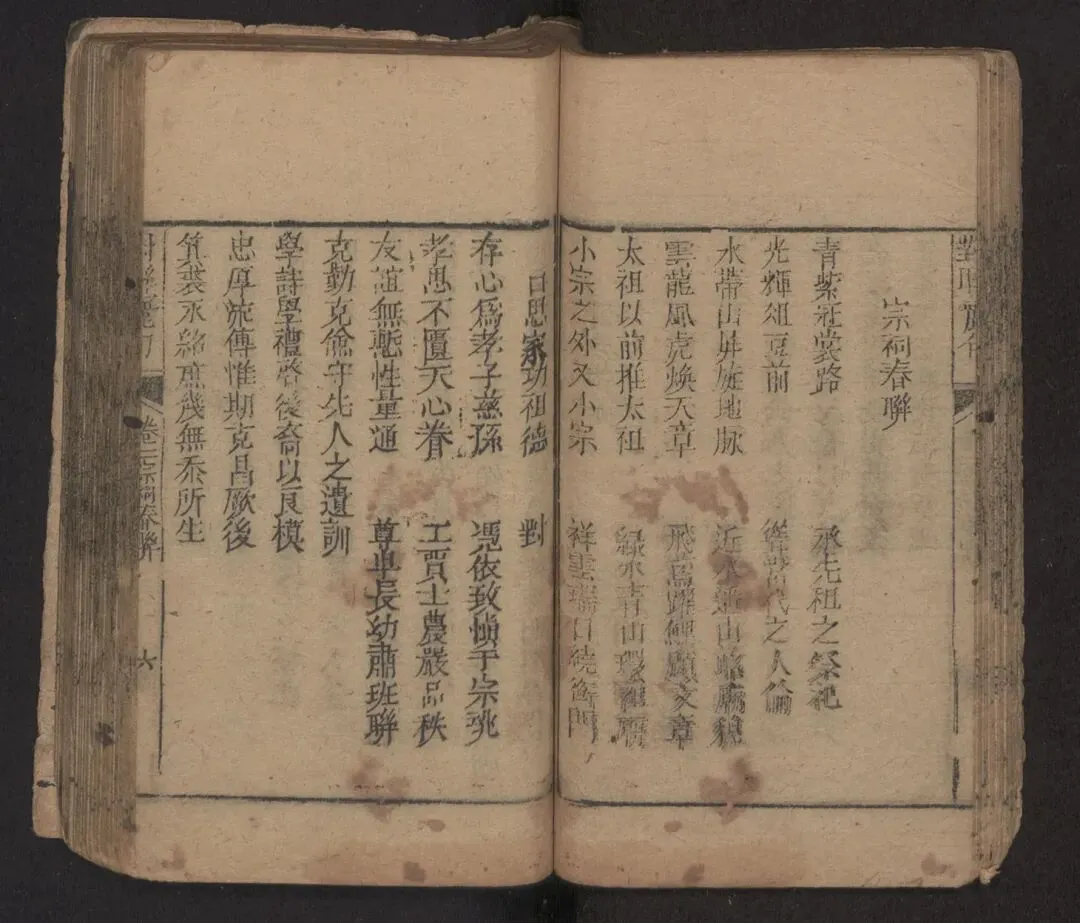 宗祠春聯
青紫冠裳路 承先祖之祭祀
光輝俎豆前 代之人倫
水帶山屏旋地脉 近水 山 廟貌
雲龍風虎煥天章 飛 躍鯉 文章
太祖以前推太祖 綠水青山環
小宗之外又小宗 祥雲瑞日繞 門
日思家功祖德 對
存心為孝子慈孫 憑依致慎于宗祧
孝思不匱天心眷 工賈士農嚴品秩
友誼無慙性量通 尊卑長幼肅班聯
克勤克儉守先人之遺訓
學詩學禮啓後裔以良模
忠厚流傳惟期克昌厥後
箕裘丕紹庶幾無忝所生
卷 宗祠春聯 六